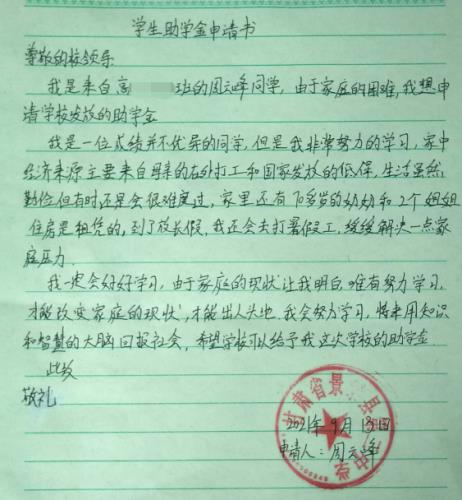 学生助学金申请书
尊敬的校领导:
我是来自高 班的周云峰同学,由于家庭的困难,我想申
请学校发放的助学金
我是一位成绩并不优异的同学,但是我非常努力的学习,家中
经济来源主要来自母亲的在外打工和国家发放的低保,生活虽然
勤俭但有时还是会很难度过,家里还有70多岁的奶奶和2个姐姐
住房是租凭的,到了放长假,我还会去打暑假工,缓缓解决一点家
庭压力.
我一定会好好学习,由于家庭的现状让我明白,唯有努力学习,
才能改变家庭的现状,才能出人头地.我会努力学习,将来用知识
和智慧的大脑回报社会,希望学校可以给予我这次学校的助学金
此致
敬礼
2021年9月13日
申请人:周云峰
甘肃省景 中学